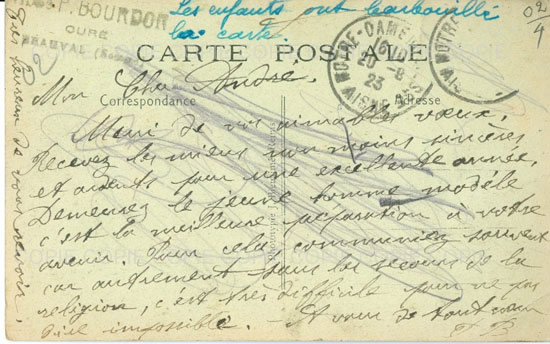 P. BOURDON
CURÉ
Les enfants ont barbouillé
la carte.
02/4
CARTE POSTALE
NOTRE-DAME
20-8
23
AISNE
NOTRE
Mon Cher André,
Correspondance
Adresse
Merci de vos aimables vœux,
Recevez les miens non moins sincères
et ardents pour une excellente année,
Demeurez le jeune homme modèle
c'est la meilleure préparation à votre
avenir. Pour cela, communiez souvent
car autrement sans les secours de la
religion, c'est très difficile pour ne pas
dire impossible. - A vous de tout cœur
P B
heureux de vous revoir.